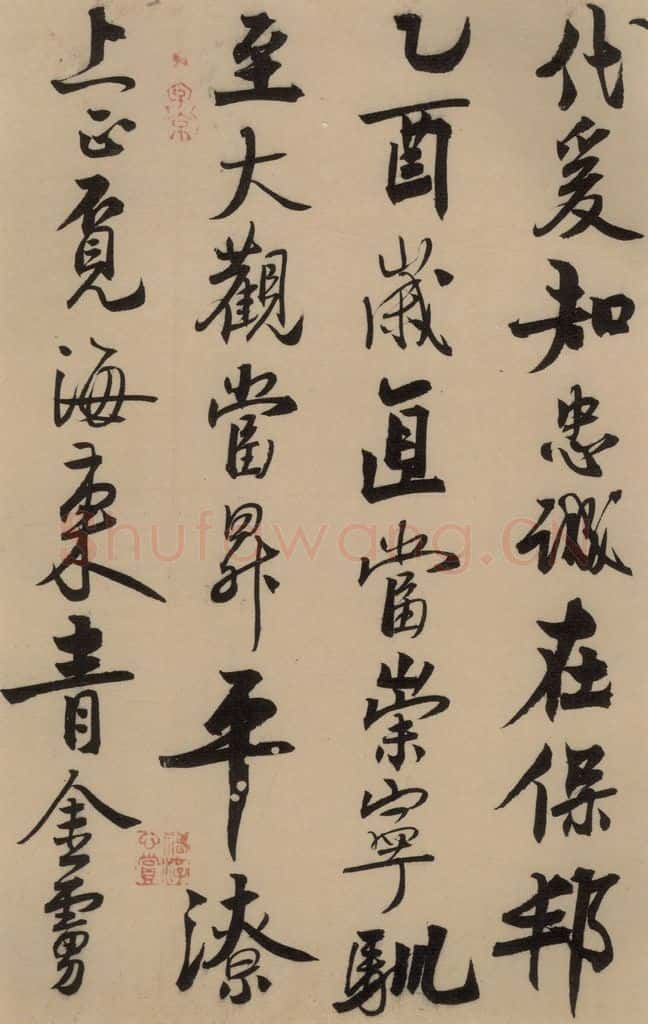 代爰知忠誠在保邦
乙酉歲直當崇寧馴
至大觀當昇平潦
上正覔海東青金
shufawang.cn